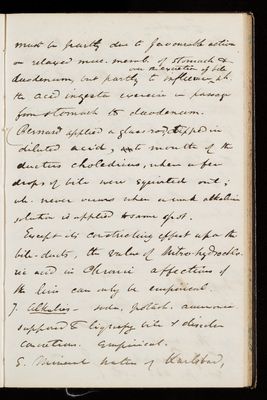 must be partly due to favourable action
on relaxed muc. memb. of stomach &
over the excretion of bile
duodenum, but partly to influence wh.
the acid ingesta exercise in passage
from stomach to duodenum.
(Bernard applied a glass rod dipped in
diluted acid, to mouth of the
ductus choledicus, when a few
drops of bile were squirted out;
wh. never occurs when a weak alkaline
solution is applied to same spot.
Except its constricting effect upon the
bile-ducts, the value of Nitro-hydrochlo-
ric acid in Chronic affections of
the liver can only be empirical.
7. Alkalies - soda, potash, ammonia
supposed to liquefy bile & dissolve
concretions. Empirical.
8. Mineral Waters of Karlsbad,